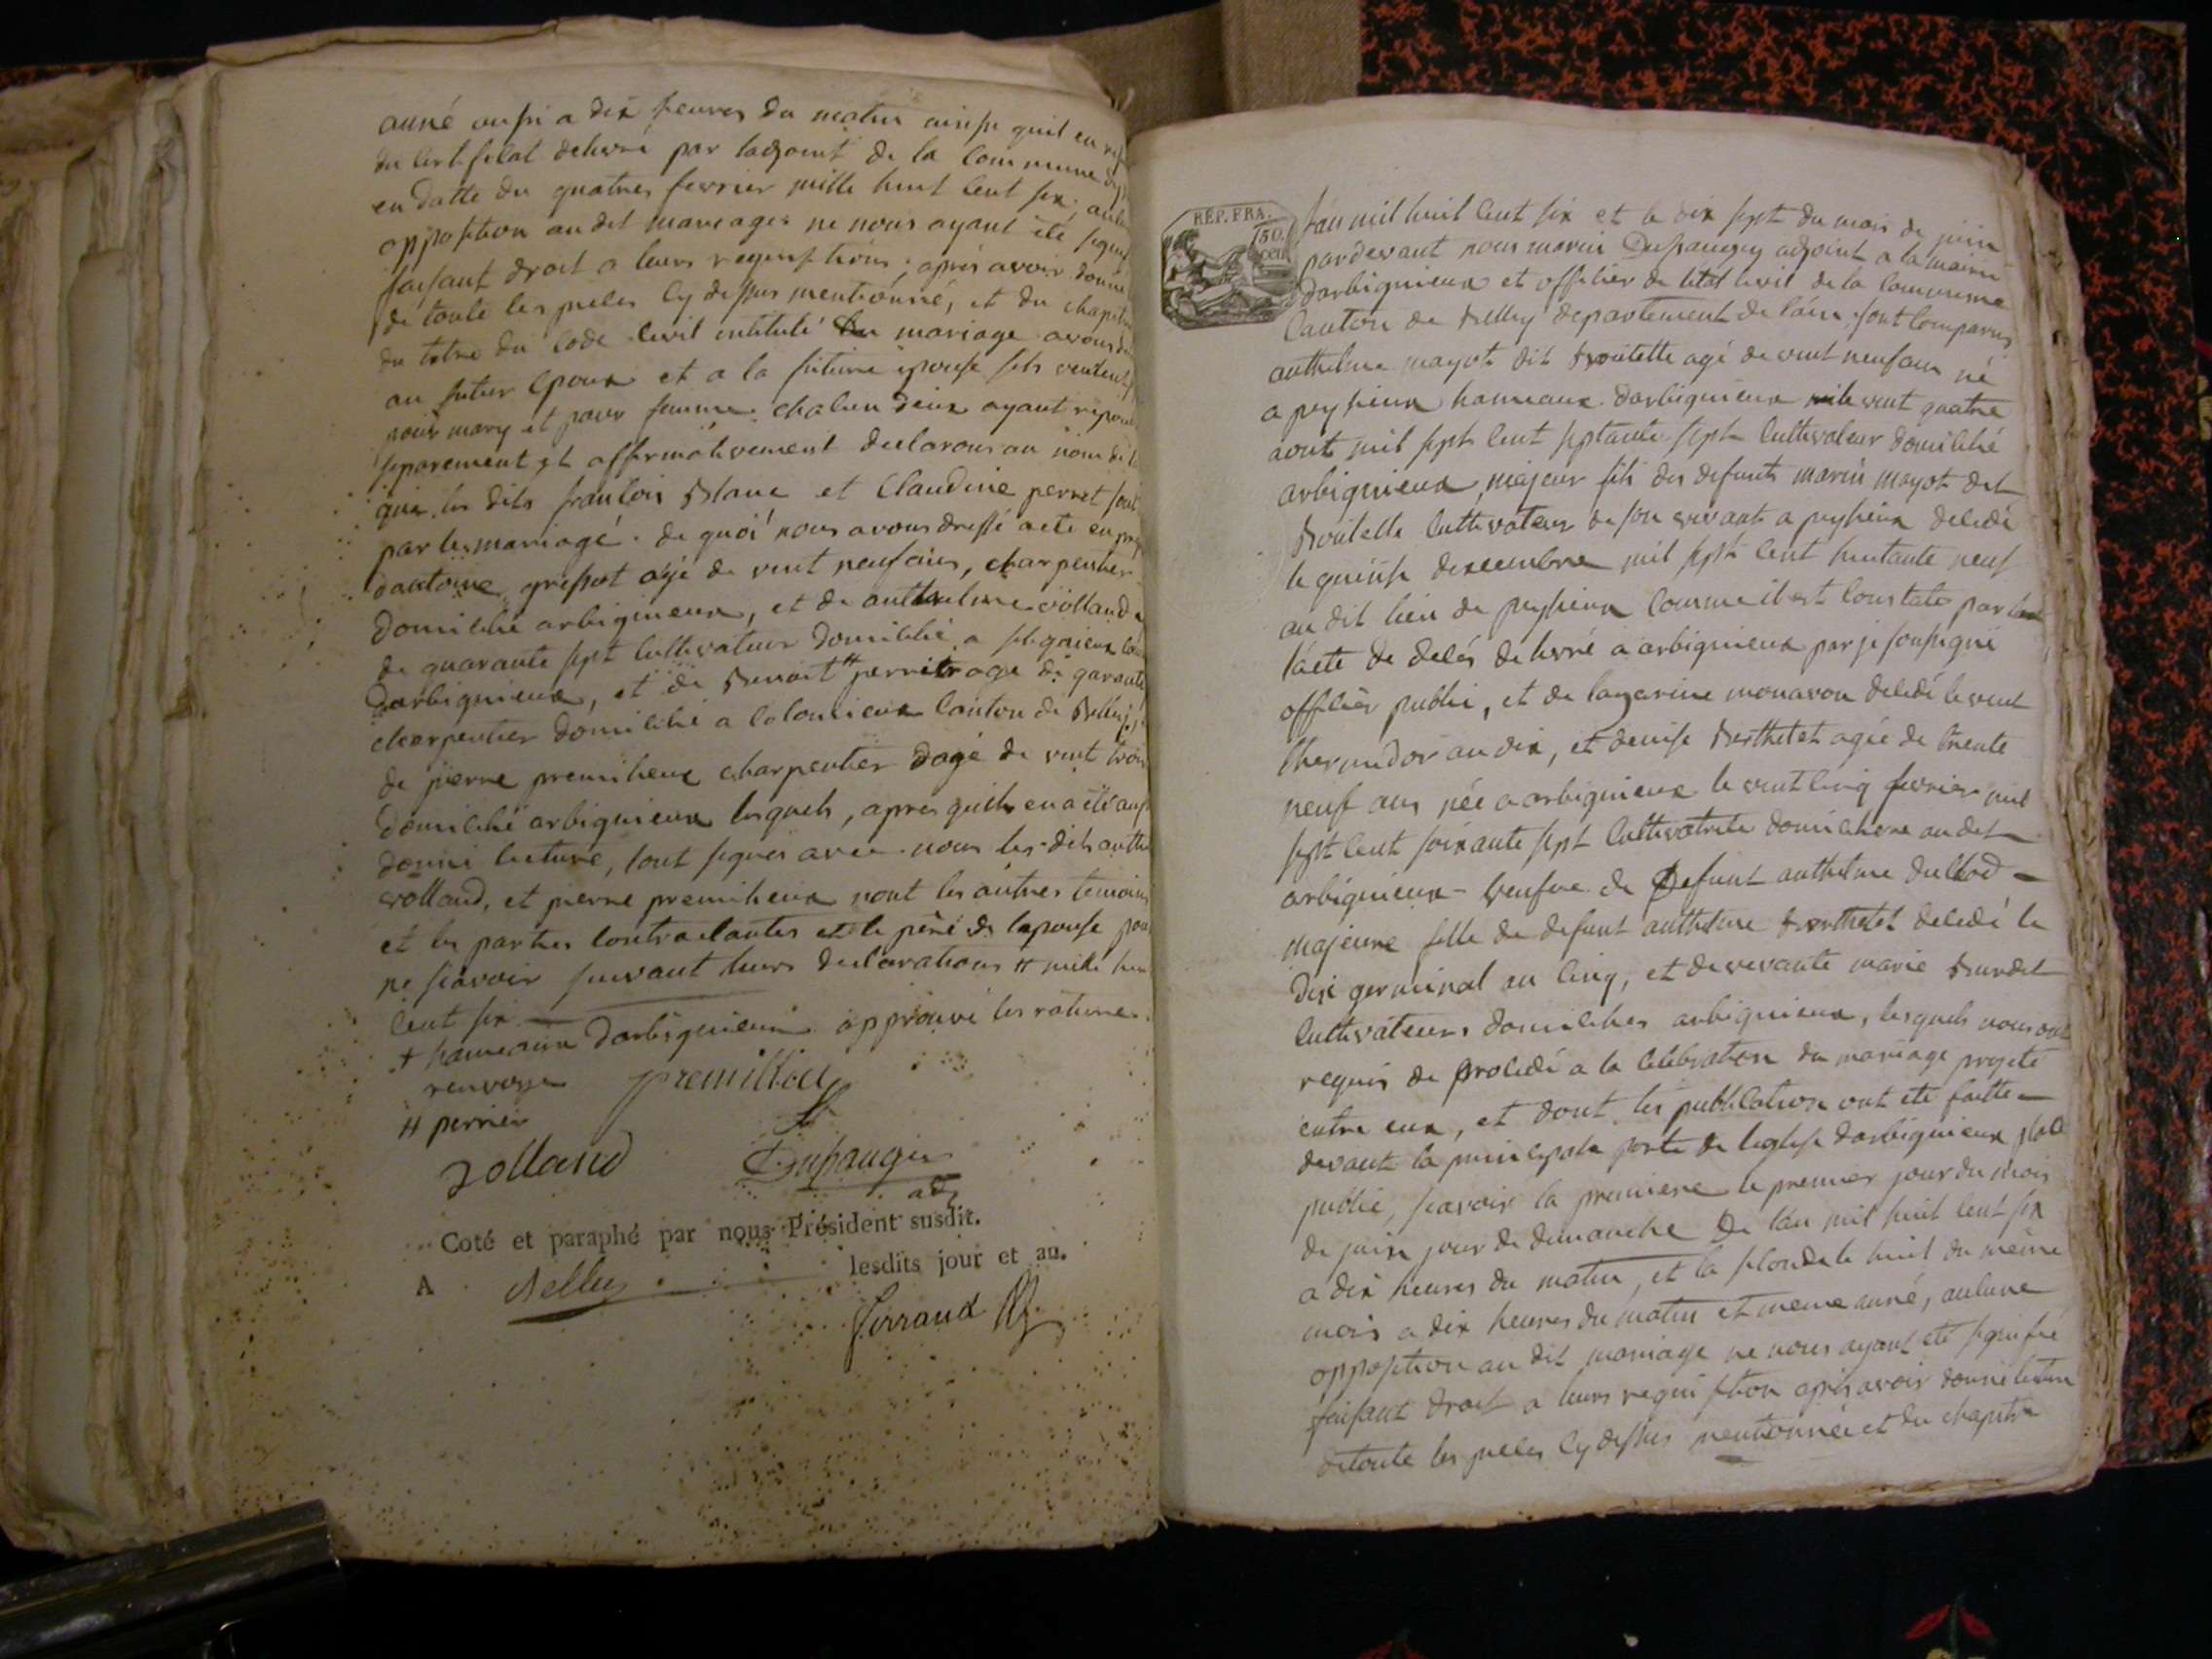 anné aussi a dix heures du matin ainsi quil en
du certificat delivré par ladjoint de la commune
en datte du quatres fevrier mille huit cent six
opposition au dit mariages ne nous ayant été
faisant droit a leurs requisitions, aprés avoir donné
de toute les pieces cy dessus mentionné, et du chapitre
du titre du code civil intitulé du mariage avons
au futur epoux et a la future epouse sils veulent
pour mary et pour femme chacun deux ayant
separement et affirmativement declarons au nom de
que les dits francois Blanc et Claudine perret sont
par les mariagé. de quoi nous avons dressé acte en
dantoine grissot agé de vint neuf ans, charpentier
domicilié arbignieux, et de anthelme vollaud
de quarante sept cultivateur domicilié a
darbignieux, et de Benoit # perrier agé de
charpentier domicilié a colomieux canton de Belley,
de pierre premilieux charpentier dagé de vint trois
domicilié arbignieux lesquels, apres quils en a été
donné lecture, sont signés avec nous les dits
vollaud, et pierre premilieux nont les autres temoins
et les parties contractantes et le père de lapouse
ne scavoir suivant leurs declarations # mille
cent six
+ hameaux darbignieux approuvé les ratures
renvoye premillieu
# perrier
volland Dupaugier
adj
Coté et paraphé par nous Président susdit.
A Belley lesdits jour et an.
Ferrand
REP. FRA.
50 cen
lan mil huit cent six et le dix sept du mois de juin
pardevant nous marin Dupaugey adjoint a la mairie
darbignieux et officier de létat civil de la commune
canton de Belley departement de lain, sont comparus
anthelme mayot dit Boutelle agé de vint neuf ans né
a peyzieux hameaux darbignieux le vint quatre
aout mil sept cent septante sept cultivateur domicilié
arbignieux, majeur fils des defunts marin mayot dit
Boutelle cultivateur de son vivant a peyzieux decedé
le quinse decembre mil sept cent huitante neuf
au dit lieu de peyzieux comme il est constaté par
lacte de décés delivré a arbignieux par je soussigné
officier public, et de lazarine monavon decedé le vint
thermidor an dix, et denise Berthet agée de trente
neuf ans née a arbignieux le vint cinq fevrier mil
sept cent soixante sept cultivatrice domiciliere au dit
arbignieux - veufve de Defunt anthelme
majeure fille de defunt anthelme Berthet decedé le
dix germinal an cinq, et de vivante marie Burdet
cultivateurs domiciliés arbignieux, lesquels nous ont
requis de procedé a la celebration du mariage projeté
entre eux, et dont les publication ont été faitte
devant la principale porte de leglise darbignieux place
public, scavoir la premiere le premier jour du mois
de juin jour de dimanche De lan mil huit cent six
a dix heures du matin, et la seconde le huit du méme
mois a dix heures du matin et meme anné, aucune
opposition au dit mariage ne nous ayant été signifié
faisant droit a leurs requisition après avoir donné lecture
de toute les pieces cy dessus mentionnée et du chapitre